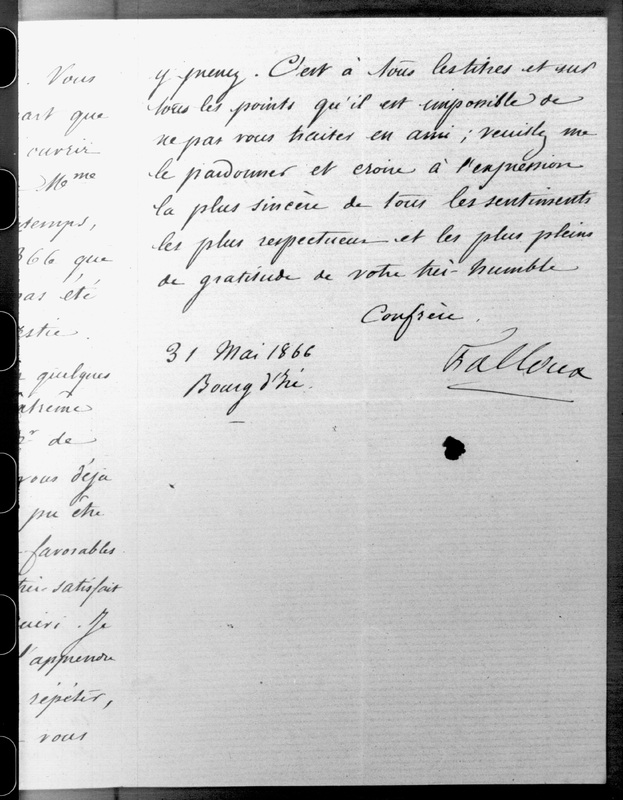 . Vous
art que
ouvrir
Mme
ntemps,
366 que
pas été
estie.
quelques
extrême
Mr de
vous déjà
pu être
favorables
très satisfait
uéri. Je
l'apprendre
répéter,
vous
y prenez. C'est à tous les titres et sur
tous les points qu'il est impossible de
ne pas vous traiter en ami ; veuillez me
le pardonner et croire à l'expression
la plus sincère de tous les sentiments
les plus respectueux et les plus pleins
de gratitude de votre très-humble
Confrère.
31 Mai 1866
Bourg d'Iré.
Falloux